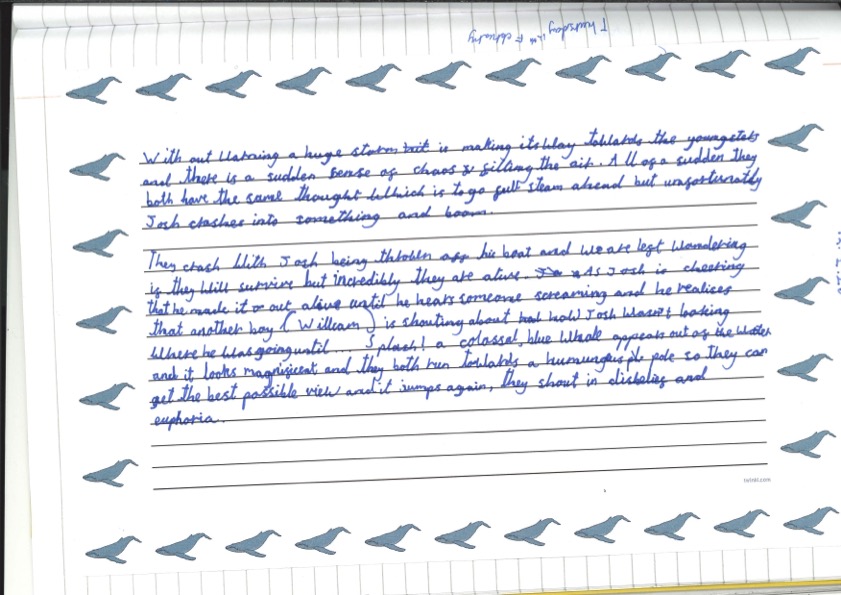 Thursday 11th February
With out warning a huge storm but is making its way towards the youngsters
and there is a sudden sense of chaos filling the air. All of a sudden they
both have the same thought which is to go full steam ahead but unfortunately
Josh crashes into something and boom.
They crash with Josh being thrown off his boat and we are left wondering
if they will survive but incredibly they are alive. As Josh is cheering
that he made it out alive until he hears someone screaming and he realises
that another boy (William) is shouting about how Josh wasn't looking
where he was going until.... Splash! a colossal blue whale appears out of the water
and it looks magnificent and they both run towards a humungus pole so they can
get the best possible view and it jumps again, they shout in disbelief and
euphoria.
twinkl.com